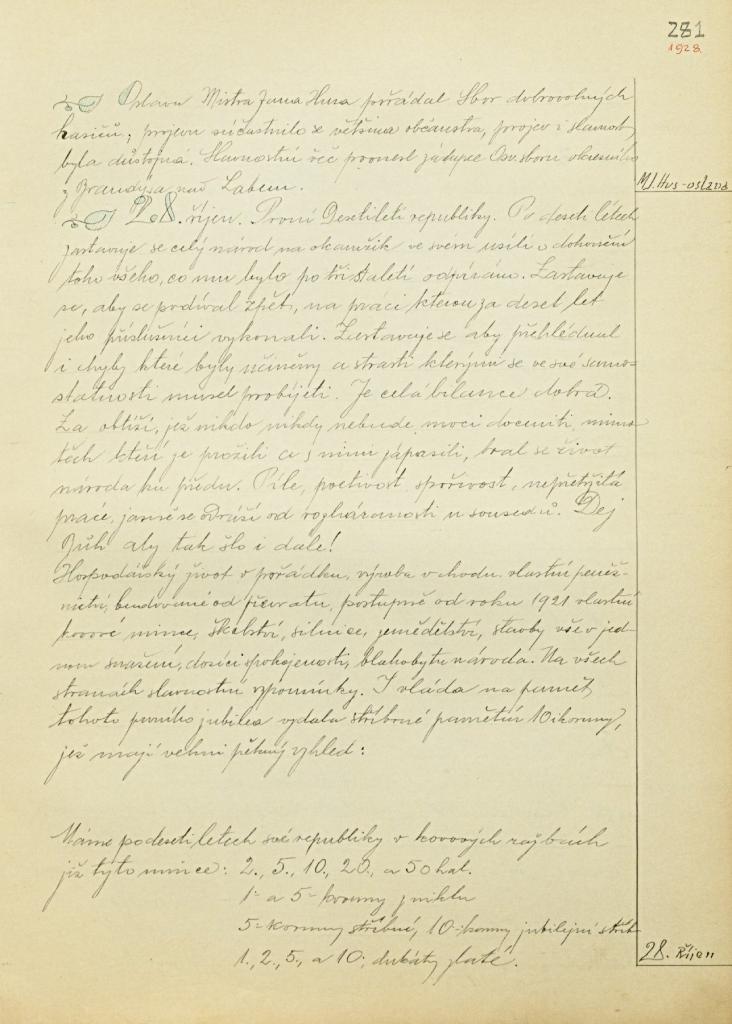 281
1928.
Oslavu Mistra Jana Husa pořádal Sbor dobrovolných
hasičů; projevu súčastnilo se většina občanstva, projev i slavnost
byla důstojná. Slavnostní řeč pronesl jádupce Osv. sboru okresního
z Brandýsa nad Labem.
M.J. Hus - oslava
28. říjen. První Desetiletí republiky. Po deseti létech
zastavuje se celý národ na okamžik ve svém úsilí o dohonění
toho všeho, co mu bylo po tři staletí odpíráno. Zastavuje
se, aby se podíval zpět, na práci kterou za deset let
jeho příslušníci vykonali. Zastavuje se aby přehlédnul
i chyby které byly učiněny a strasti kterými se ve své samo=
statnosti musel probíjeti. Je celá bilance dobrá.
Za obtíží, jež nikdo nikdy nebude moci doceniti, mimo
těch kteří je prožili a s nimi zápasili, bral se život
národa ku předu. Píle, poctivost, spořivost, nepřetržitá
práce, jasně se odráží od rozháranosti u sousedů. Dej
Bůh aby tak šlo i dále!
Hospodářský život v pořádku, výroba v chodu. vlastní peněž-
nictví, budované od převratu, postupně od roku 1921 vlastní
kovové mince, školství, silnice, zemědělství, stavby vše v jed-
nom snažení, dosíci spokojenosti, blahobytu národa. Na všech
stranách slavnostní vzpomínky. I vláda na paměť
tohoto prvního jubilea vydala stříbrné pamětní 10ti koruny,
jež mají velmi pěkný vzhled:
Máme po deseti letech své republiky v kovových ražbách
již tyto mince: 2., 5., 10., 20., a 50 hal.
1- a 5- koruny z niklu
5- koruny stříbrné, 10- koruny jubilejní stříb
1., 2., 5., a 10; dukáty zlaté.
28. Říjen